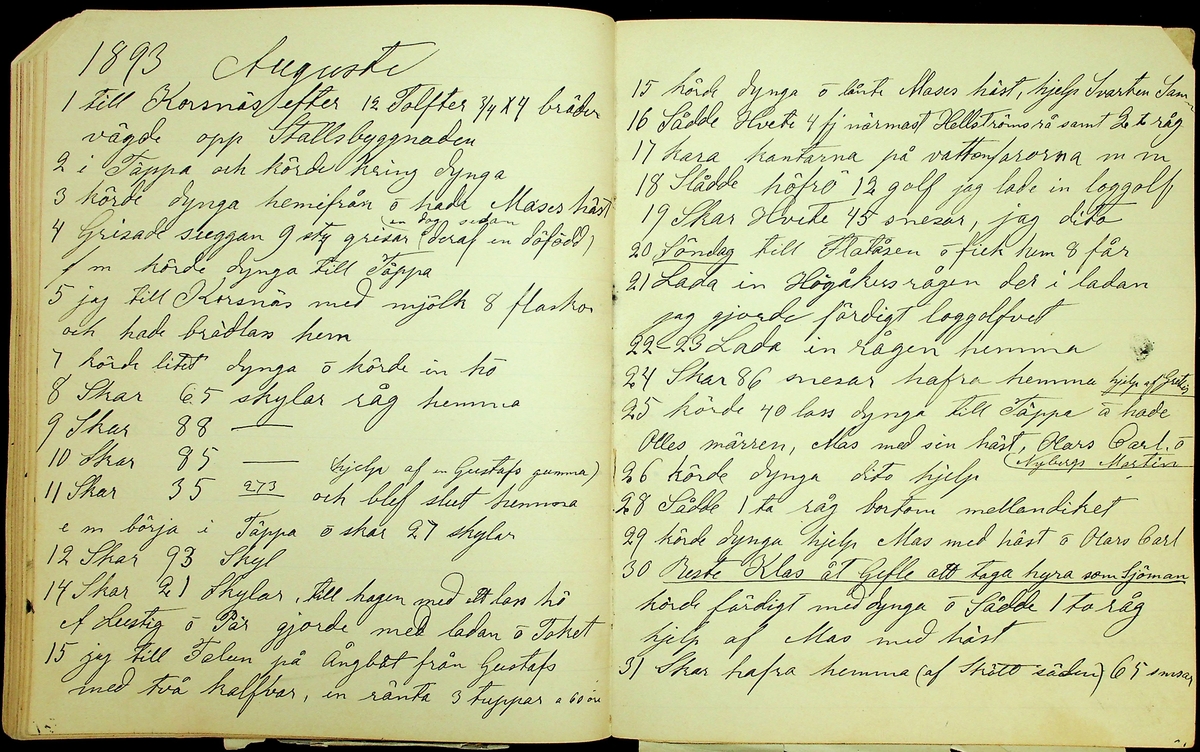 1893 Augusti
1 till Korsnäs efter 12 Tolfter 3/4 X 4 bräder
vägde opp Stallsbyggnaden
2 i Täppa och körde kring dynga
3 körde dynga hemifrån o hade Mases häst
4 Grisade suggan 9 sty grisar (deraf en dödfödd)
en dog sedan
f m körde dynga till Täppa
5 jag till Korsnäs med mjölk 8 flaskor
och hade brädlass hem
7 körde litet dynga o körde in hö
8 Skar 65 skylar råg hemma
9 Skar 88 —
10 Skar 85 — hjelp af en Gustafs gumma)
11 Skar 35 273 och blef slut hemma
e m börja i Täppa o skar 27 skylar
12 Skar 93 Skyl
14 Skar 21 Skylar, till hagen med ett lass hö
A Lustig o Pär gjorde med ladan o Taket
15 jag till Falun på Ångbåt från Gustafs
med två kalfvar, en ränta 3 tuppar a 60 öre
15 körde dynga o lånte Mases häst, hjelp Svarten Sam
16 Sådde Hvete 4 fj närmast Hellströms rå samt 2 t råg
17 kara kantarna på vattenfårorna m m
18 Slådde höfrö 12 golf jag lade in loggolf
19 Skar Hvete 45 snesar, jag dito
20 Söndag till Flatåsen o fick hem 8 får
21 Lada in Högåkersrågen der i ladan
jag gjorde färdigt loggolfvet
22-23 Lada in rågen hemma
24 Skar 86 snesar hafra hemma hjelp af
25 körde 40 lass dynga till Täppa a hade
Olles märren, Mas med sin häst, Olars Carl o
(Nybergs Martin
26 körde dynga dito hjelp
28 Sådde 1 ta råg bortom mellandiket
29 körde dynga hjelp Mas med häst o Olars Carl
30 Reste Klas åt Gefle att taga hyra som Sjöman
körde färdigt med dynga o Sådde 1 ta råg
hjelp af Mas med häst
31 Skar hafra hemma (af Skött säden) 65 snesar